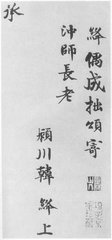 絳偶成拙頌寄
沖師長老
潁川韓絳上